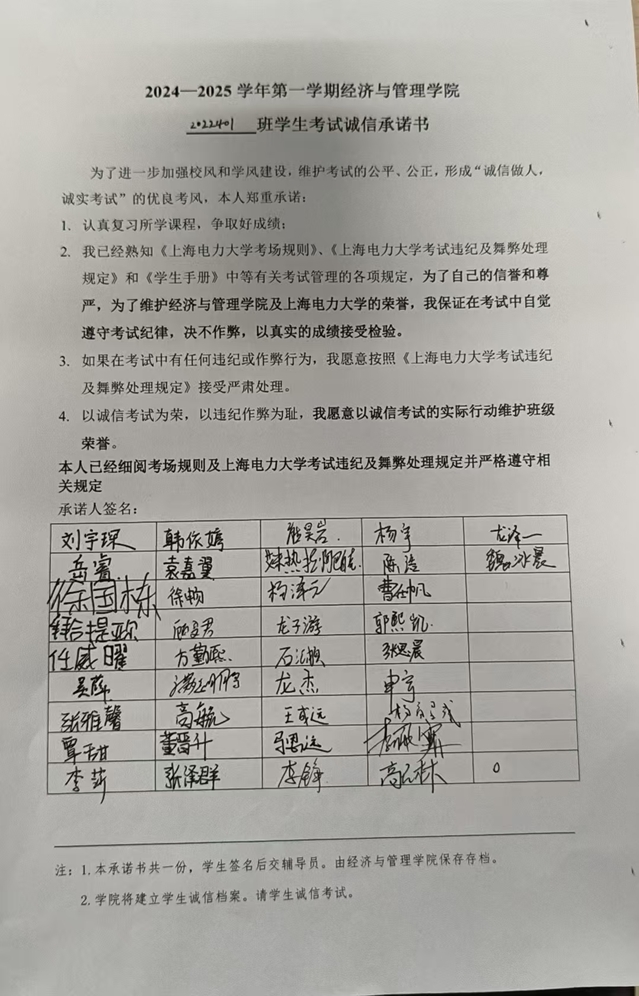 2024—2025 学年第一学期经济与管理学院
2022401 班学生考试诚信承诺书
为了进一步加强校风和学风建设，维护考试的公平、公正，形成“诚信做人，
诚实考试”的优良考风，本人郑重承诺：
1. 认真复习所学课程，争取好成绩；
2. 我已经熟知《上海电力大学考场规则》、《上海电力大学考试违纪及舞弊处理
规定》和《学生手册》中等有关考试管理的各项规定，为了自己的信誉和尊
严，为了维护经济与管理学院及上海电力大学的荣誉，我保证在考试中自觉
遵守考试纪律，决不作弊，以真实的成绩接受检验。
3. 如果在考试中有任何违纪或作弊行为，我愿意按照《上海电力大学考试违纪
及舞弊处理规定》接受严肃处理。
4. 以诚信考试为荣，以违纪作弊为耻，我愿意以诚信考试的实际行动维护班级
荣誉。
本人已经细阅考场规则及上海电力大学考试违纪及舞弊处理规定并严格遵守相
关规定
承诺人签名：
刘宇琛 韩依嫣 熊昊岩 杨宇 龙泽一
岳睿 袁嘉翼 陈 魏冰晨
徐国栋 徐畅 杨泽元 曹仕帆
龙子游 郭熙凯
任威曜 方勤熙 石 张思晨
吴薛 龙杰
张雅馨 高毓 王 远
覃甜 董晋升 马思远
李莎 张泽群 李锋 高 林
注：1. 本承诺书共一份，学生签名后交辅导员。由经济与管理学院保存存档。
2. 学院将建立学生诚信档案。请学生诚信考试。